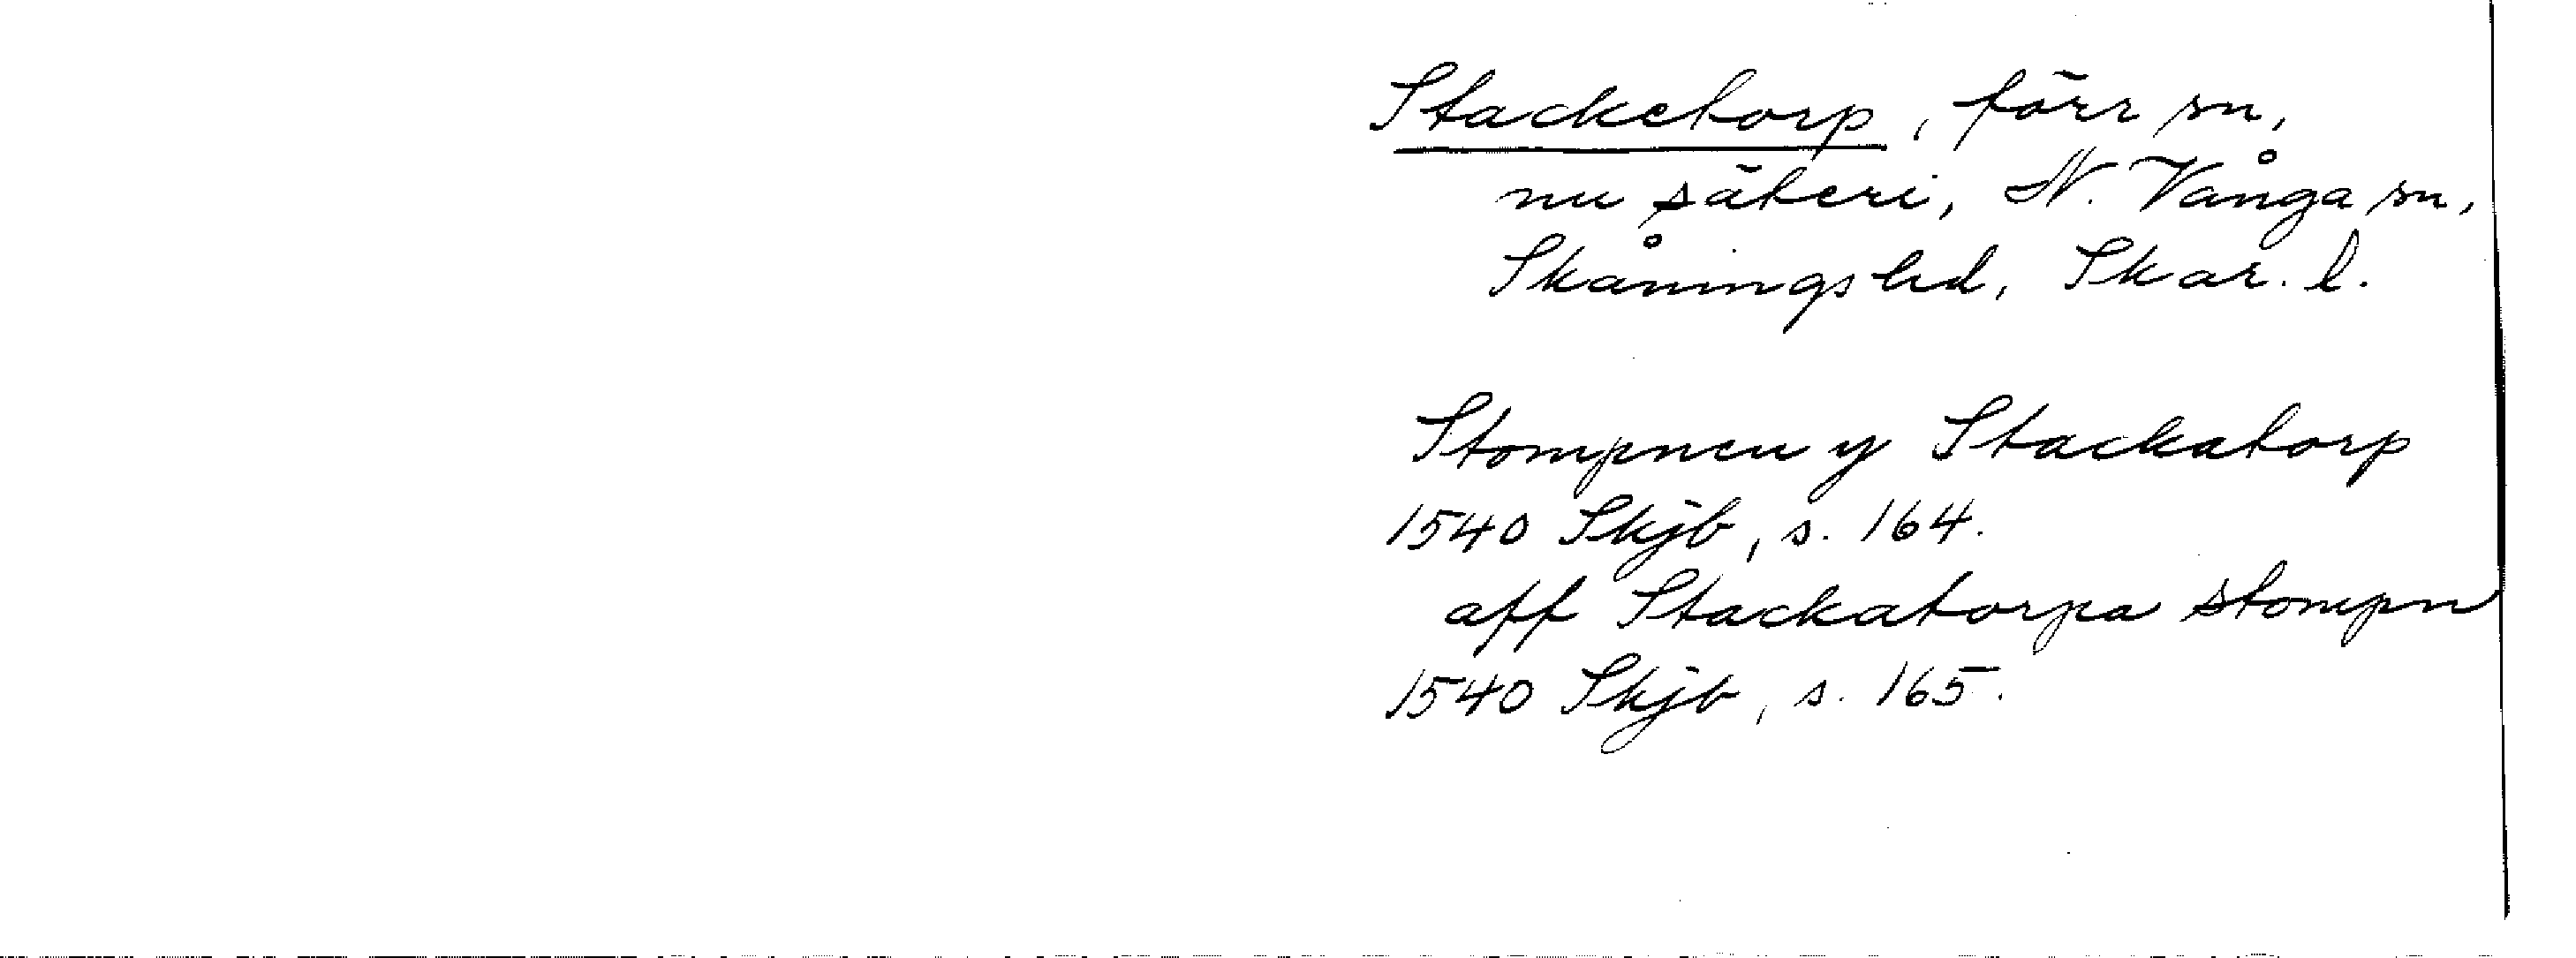 Stacketorp, förr sn,
nu säteri, N. Vånga sn,
Skånings hd, Skar. l.
Stompnen y Stackatorp
1540 Skjb, s. 164.
aff Stackatorpa stompn
1540 Skjb, s. 165.